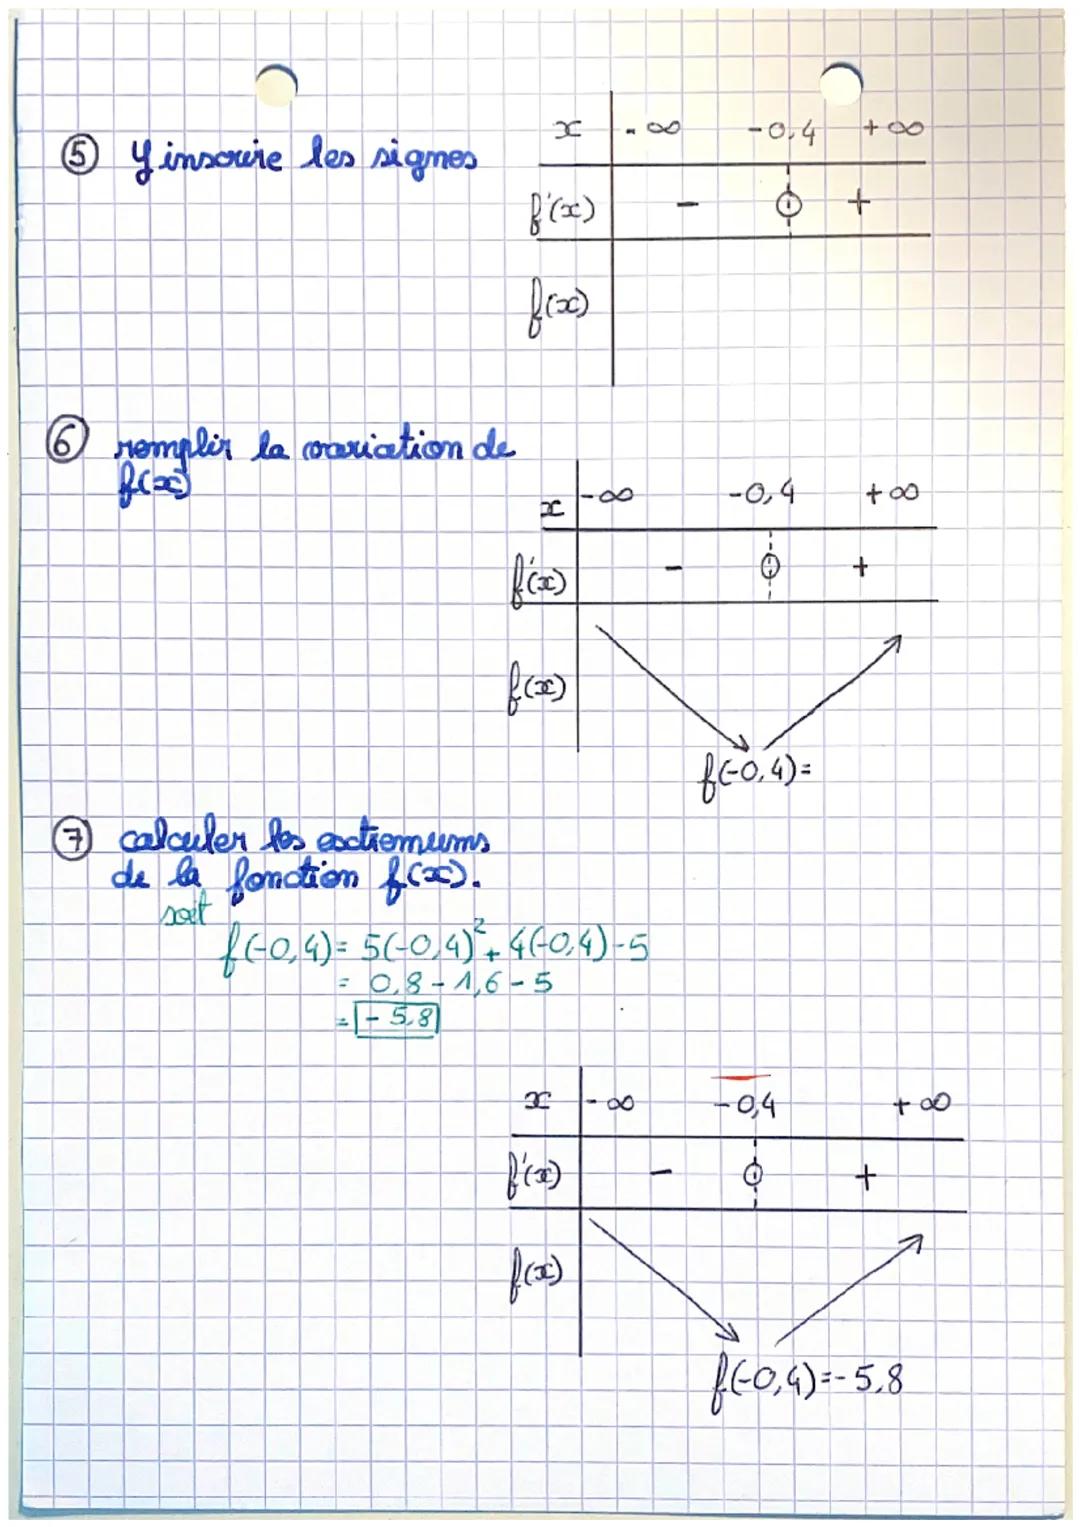 ⑤ Y inscrire les signes
x -∞ -0,4 +∞
f'(x) - 0 +
f(x)
⑥ remplir la variation de
f(x)
x -∞ -0,4 +∞
f'(x) - 0 +
f(x)
f(-0,4)=
⑦ calculer les extremums
de la fonction f(x).
soit
f(-0,4)= 5(-0,4)²+ 4(-0,4)-5
= 0,8 - 1,6 - 5
= - 5,8
x -∞ -0,4 +∞
f'(x) - 0 +
f(x)
f(-0,4)=-5,8